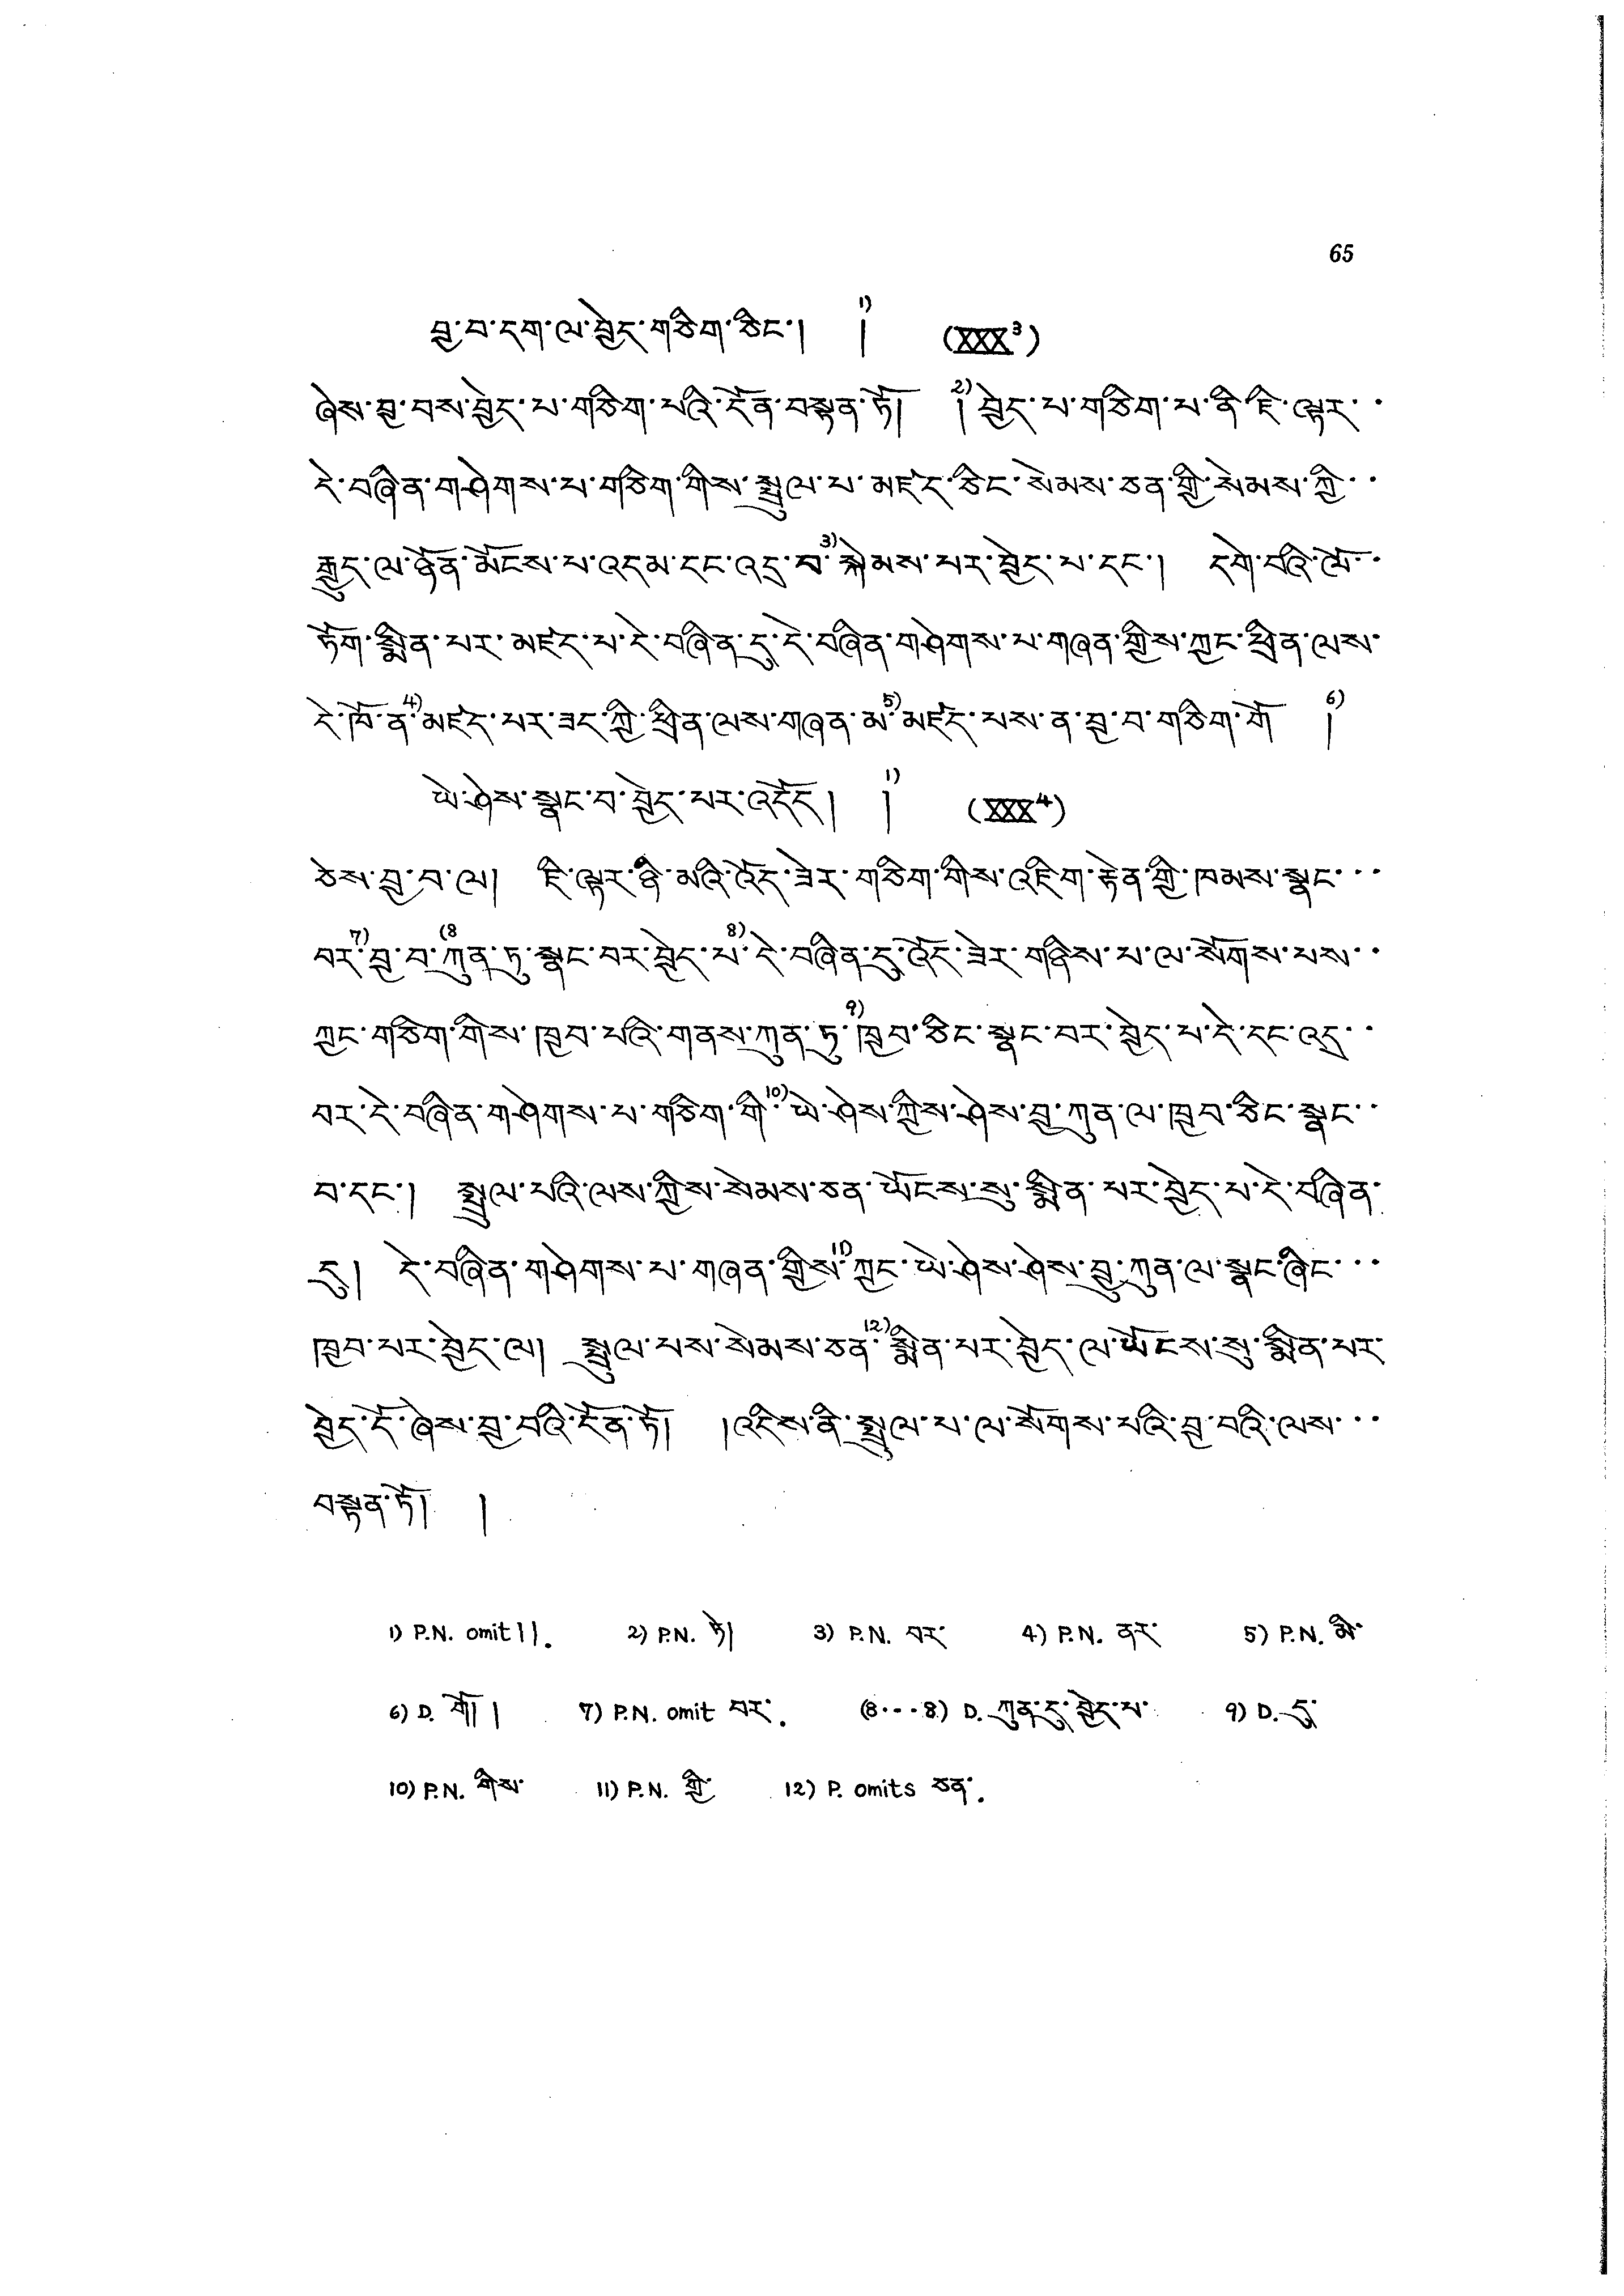 65
བྱ་བ་དག་ལ་བྱེད་གཅིག་ཅིང་། 1)། (XXX³)
ཞེས་བྱ་བས་བྱེད་པ་གཅིག་པའི་དོན་བསྟན་ཏོ། 2)།བྱེད་པ་གཅིག་པ་ནི་ཇི་ལྟར་··
དེ་བཞིན་གཤེགས་པ་གཅིག་གིས་སྤྲུལ་པ་མཛད་ཅིང་སེམས་ཅན་གྱི་སེམས་ཀྱི་··
རྒྱུད་ལ་ཉོན་མོངས་པ་འདམ་དང་འདྲ་བ་3)སྐེམས་པར་བྱེད་པ་དང་། དགེ་བའི་ལོ་··
ཏོག་སྨིན་པར་མཛད་པ་དེ་བཞིན་དུ་དེ་བཞིན་གཤེགས་པ་གཞན་གྱིས་ཀྱང་ཕྲིན་ལས་
དེ་ཁོ་ན་4)མཛད་པར་ཟད་ཀྱི་ཕྲིན་ལས་གཞན་མ་5)མཛད་པས་ན་བྱ་བ་གཅིག་གོ 6)།
ཡེ་ཤེས་སྣང་བ་བྱེད་པར་འདོད། 1)། (XXX⁴)
ཅེས་བྱ་བ་ལ། ཇི་ལྟར་ཉི་མའི་འོད་ཟེར་གཅིག་གིས་འཇིག་རྟེན་གྱི་ཁམས་སྣང་···
བར་7)བྱ་བ་(8ཀུན་ཏུ་སྣང་བར་བྱེད་པ་8)དེ་བཞིན་དུ་འོད་ཟེར་གཉིས་པ་ལ་སོགས་པས་··
ཀྱང་གཅིག་གིས་ཁྱབ་པའི་གནས་ཀུན་ཏུ་9)ཁྱབ་ཅིང་སྣང་བར་བྱེད་པ་དེ་དང་འདྲ་··
བར་དེ་བཞིན་གཤེགས་པ་གཅིག་གི་10)ཡེ་ཤེས་ཀྱིས་ཤེས་བྱ་ཀུན་ལ་ཁྱབ་ཅིང་སྣང་··
བ་དང་། སྤྲུལ་པའི་ལས་ཀྱིས་སེམས་ཅན་ཡོངས་སུ་སྨིན་པར་བྱེད་པ་དེ་བཞིན་
དུ། དེ་བཞིན་གཤེགས་པ་གཞན་གྱིས་11)ཀྱང་ཡེ་ཤེས་ཤེས་བྱ་ཀུན་ལ་སྣང་ཞིང་···
ཁྱབ་པར་བྱེད་ལ། སྤྲུལ་པས་སེམས་ཅན་12)སྨིན་པར་བྱེད་ལ་ཡོངས་སུ་སྨིན་པར་
བྱེད་དོ་ཞེས་བྱ་བའི་དོན་ཏོ། །འདིས་ནི་སྤྲུལ་པ་ལ་སོགས་པའི་བྱ་བའི་ལས་···
བསྟན་ཏོ། །
1) P.N. omit །།. 2) P.N. ཏེ། 3) P.N. བར་ 4) P.N. ནར་ 5) P.N. མི་
6) D. གོ། ། 7) P.N. omit བར་. (8···8) D. ཀུན་དུ་བྱེད་པ་ 9) D. དུ་
10) P.N. གིས་ 11) P.N. གྱི་ 12) P. omits ཅན་.